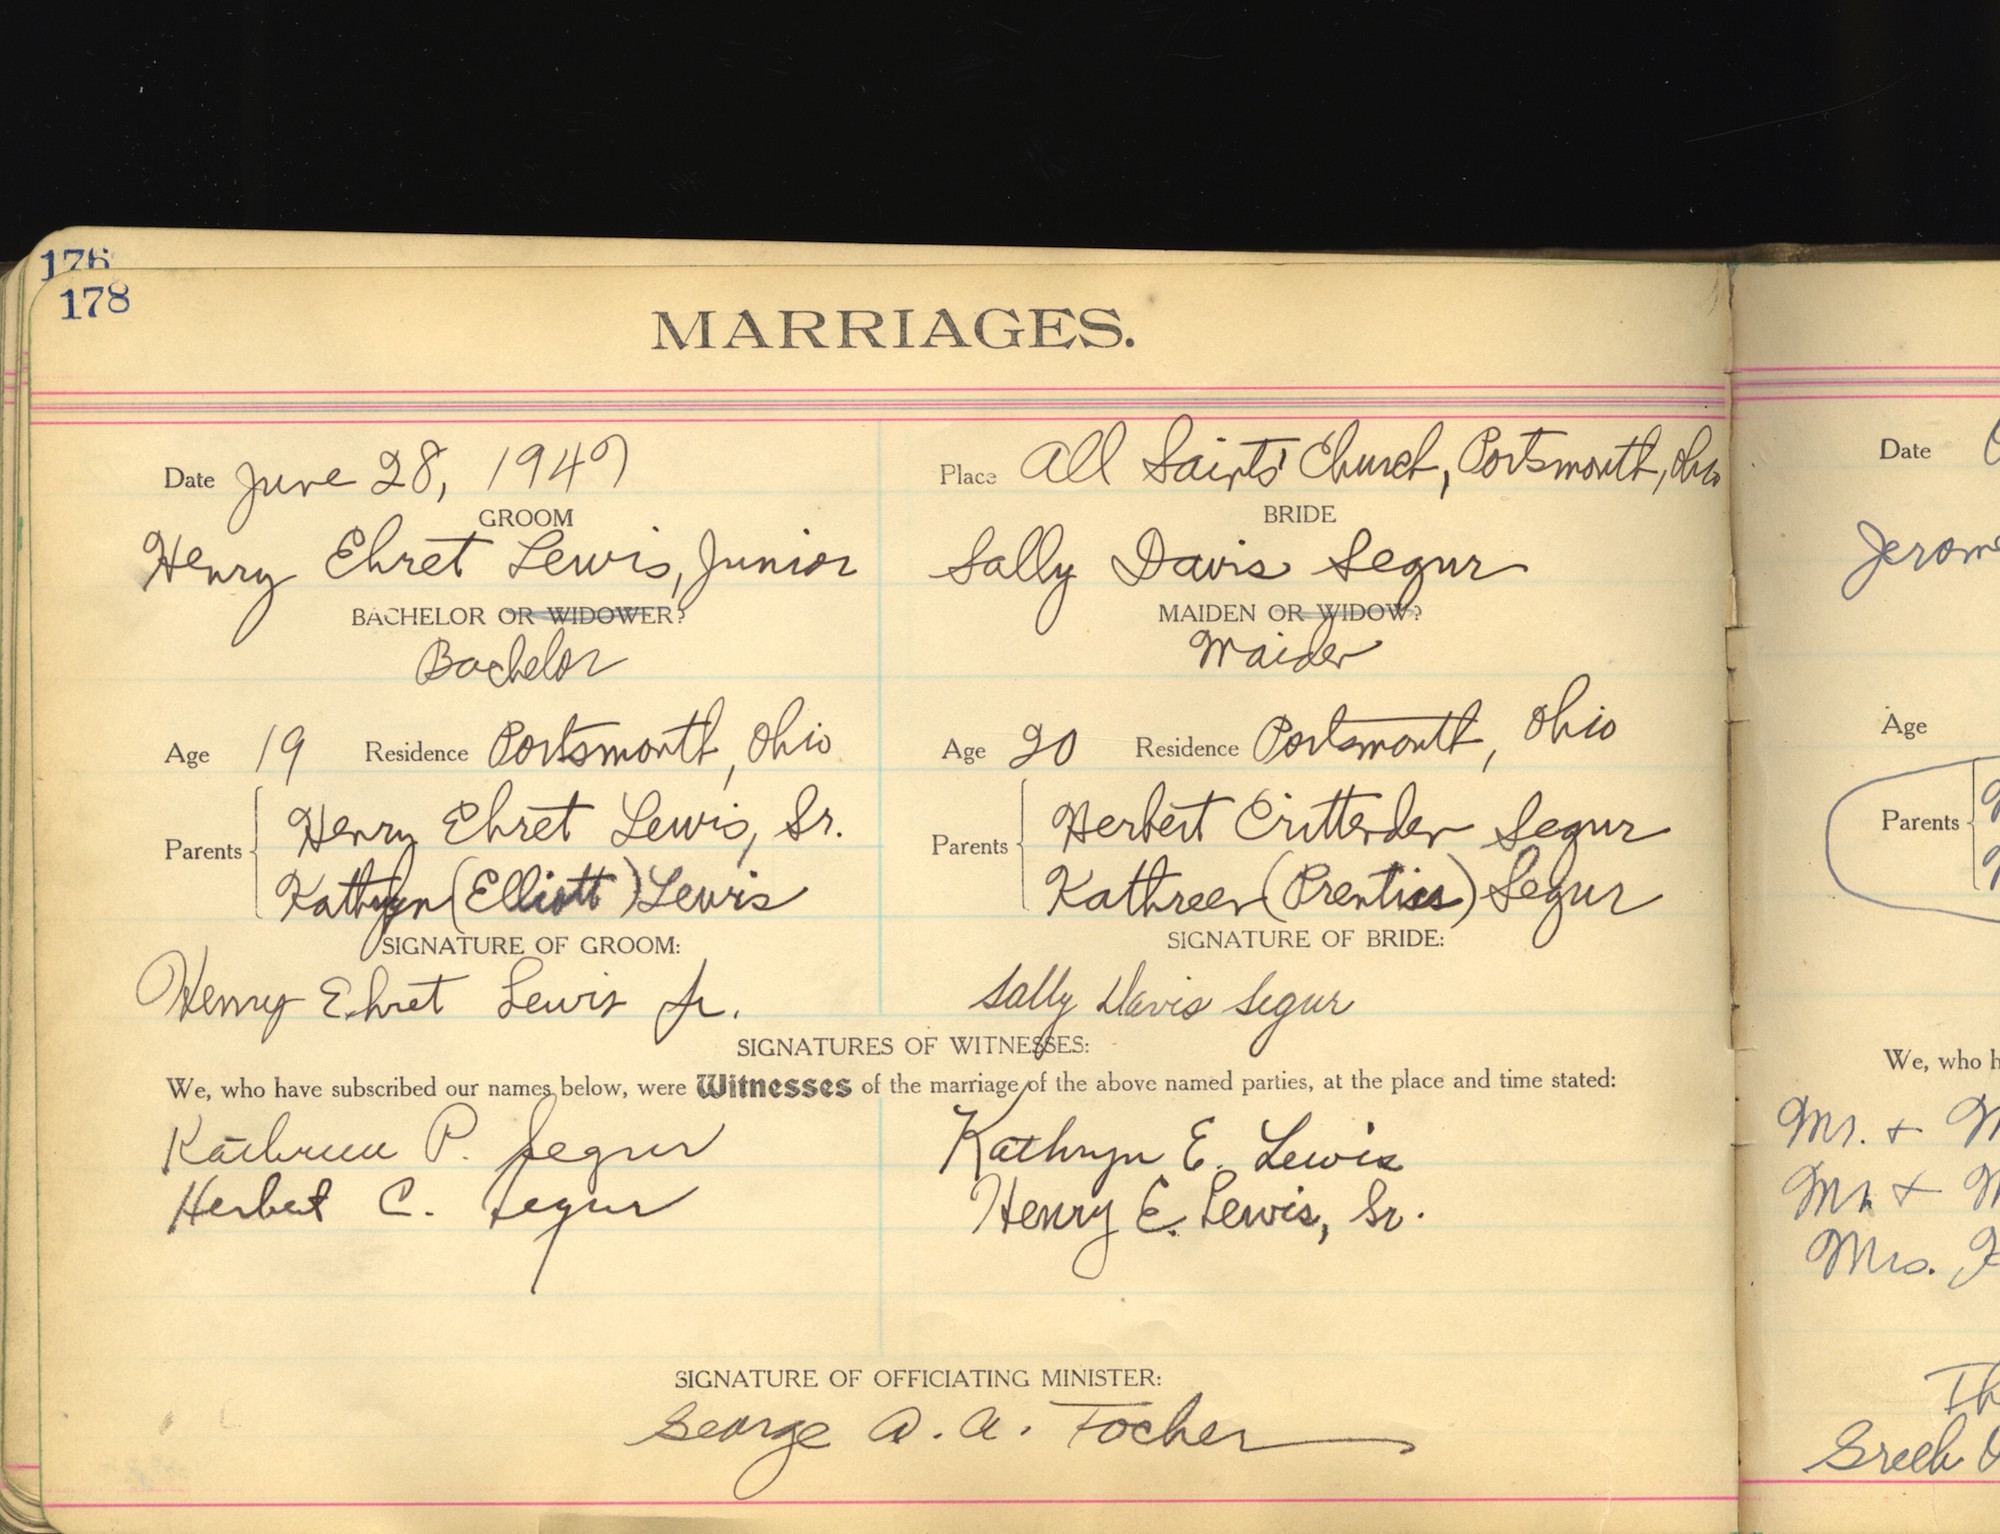 176
178
MARRIAGES.
Date June 28, 1949 Place All Saints' Church, Portsmouth, Ohio
GROOM BRIDE
Henry Ehret Lewis, Junior Sally Davis Segur
BACHELOR OR WIDOWER? MAIDEN OR WIDOW?
Bachelor Maiden
Age 19 Residence Portsmouth, Ohio Age 20 Residence Portsmouth, Ohio
Parents Henry Ehret Lewis, Sr. Parents Herbert Crittenden Segur
Kathryn (Elliott) Lewis Kathreen (Prentiss) Segur
SIGNATURE OF GROOM: SIGNATURE OF BRIDE:
Henry Ehret Lewis Jr. Sally Davis Segur
SIGNATURES OF WITNESSES:
We, who have subscribed our names below, were Witnesses of the marriage of the above named parties, at the place and time stated:
Kathreen P. Segur Kathryn E. Lewis
Herbert C. Segur Henry E. Lewis, Sr.
SIGNATURE OF OFFICIATING MINISTER:
George D. A. Focher
Date
Jerome
Age
Parents
We, who h
Mr. + M
Mr + M
Mrs.
Th
Greek O